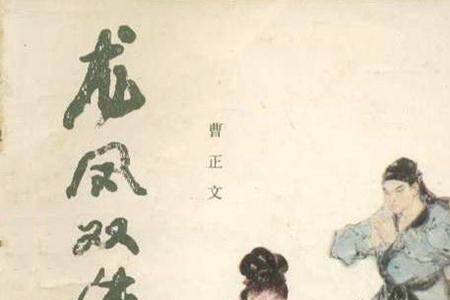 龙凤双
曹正文